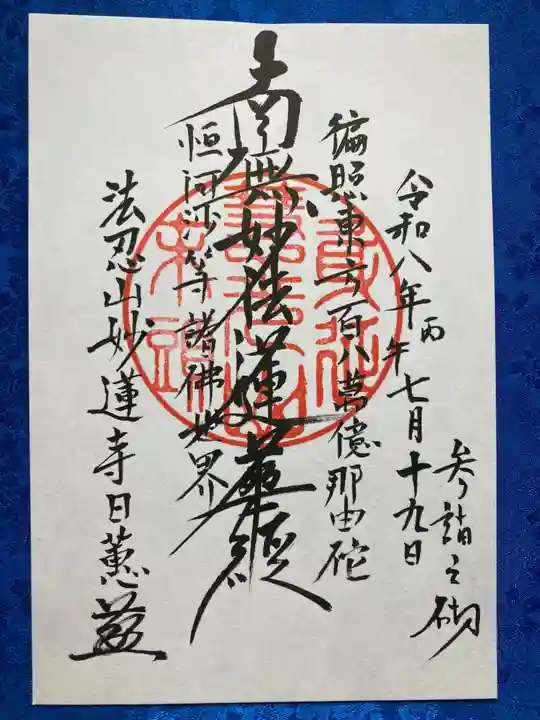 参詣之砌
令和八年丙午七月十九日
徧照東方百八萬億那由砣
南無妙法蓮華経
恒河沙等諸佛世界
法忍山妙蓮寺日蕙